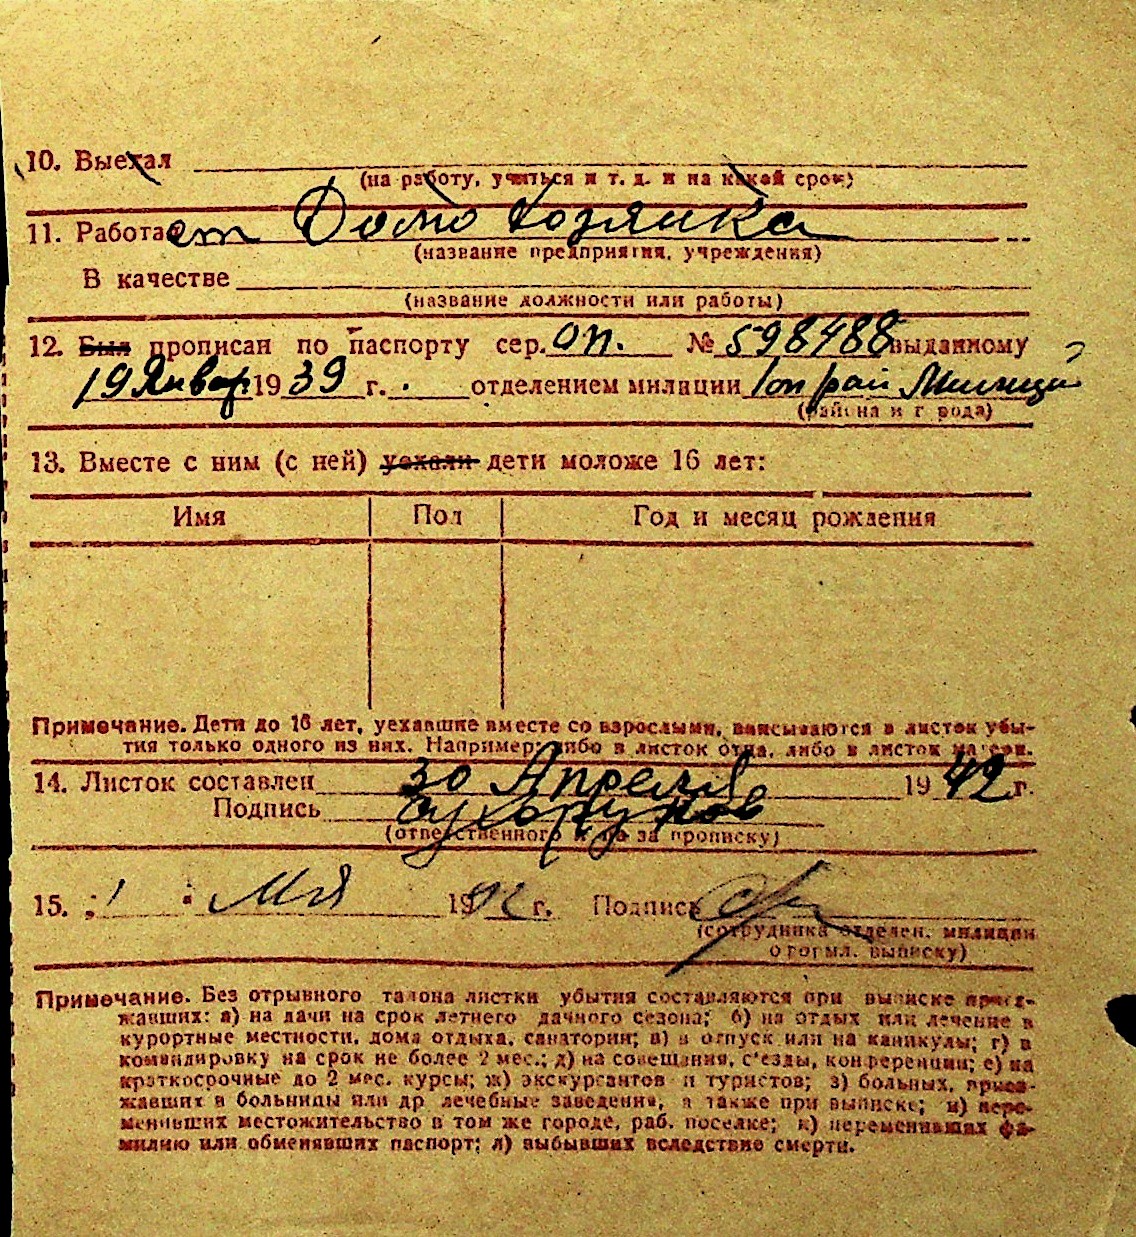 10. Выехал
(на работу, учиться и т. д. и на какой срок)
11. Работает Домо Хозяйка
(название предприятия, учреждения)
В качестве
(название должности или работы)
12. Был прописан по паспорту сер. ОП. № 598488 выданному
19 Январ. 1939 г. отделением милиции 1оп рай Милиций
(района и города)
13. Вместе с ним (с ней) уехали дети моложе 16 лет:
Имя Пол Год и месяц рождения
Примечание. Дети до 16 лет, уехавшие вместе со взрослыми, вписываются в листок убы-
тия только одного из них. Например: либо в листок отца, либо в листок матери.
14. Листок составлен 30 Апреля 1942 г.
Подпись Сухоруков
(ответственного лица за прописку)
15. 1 Мая 1942 г. Подпись
(сотрудника отделен. милиции
оформл. выписку)
Примечание. Без отрывного талона листки убытия составляются при выписке приез-
жавших: а) на дачи на срок летнего дачного сезона; б) на отдых или лечение в
курортные местности, дома отдыха, санатории; в) в отпуск или на каникулы; г) в
командировку на срок не более 2 мес.; д) на совещания, с'езды, конференции; е) на
краткосрочные до 2 мес. курсы; ж) экскурсантов и туристов; з) больных, приез-
жавших в больницы или др лечебные заведения, а также при выписке; и) пере-
менивших местожительство в том же городе, раб. поселке; к) переменивших фа-
милию или обменявших паспорт; л) выбывших вследствие смерти.